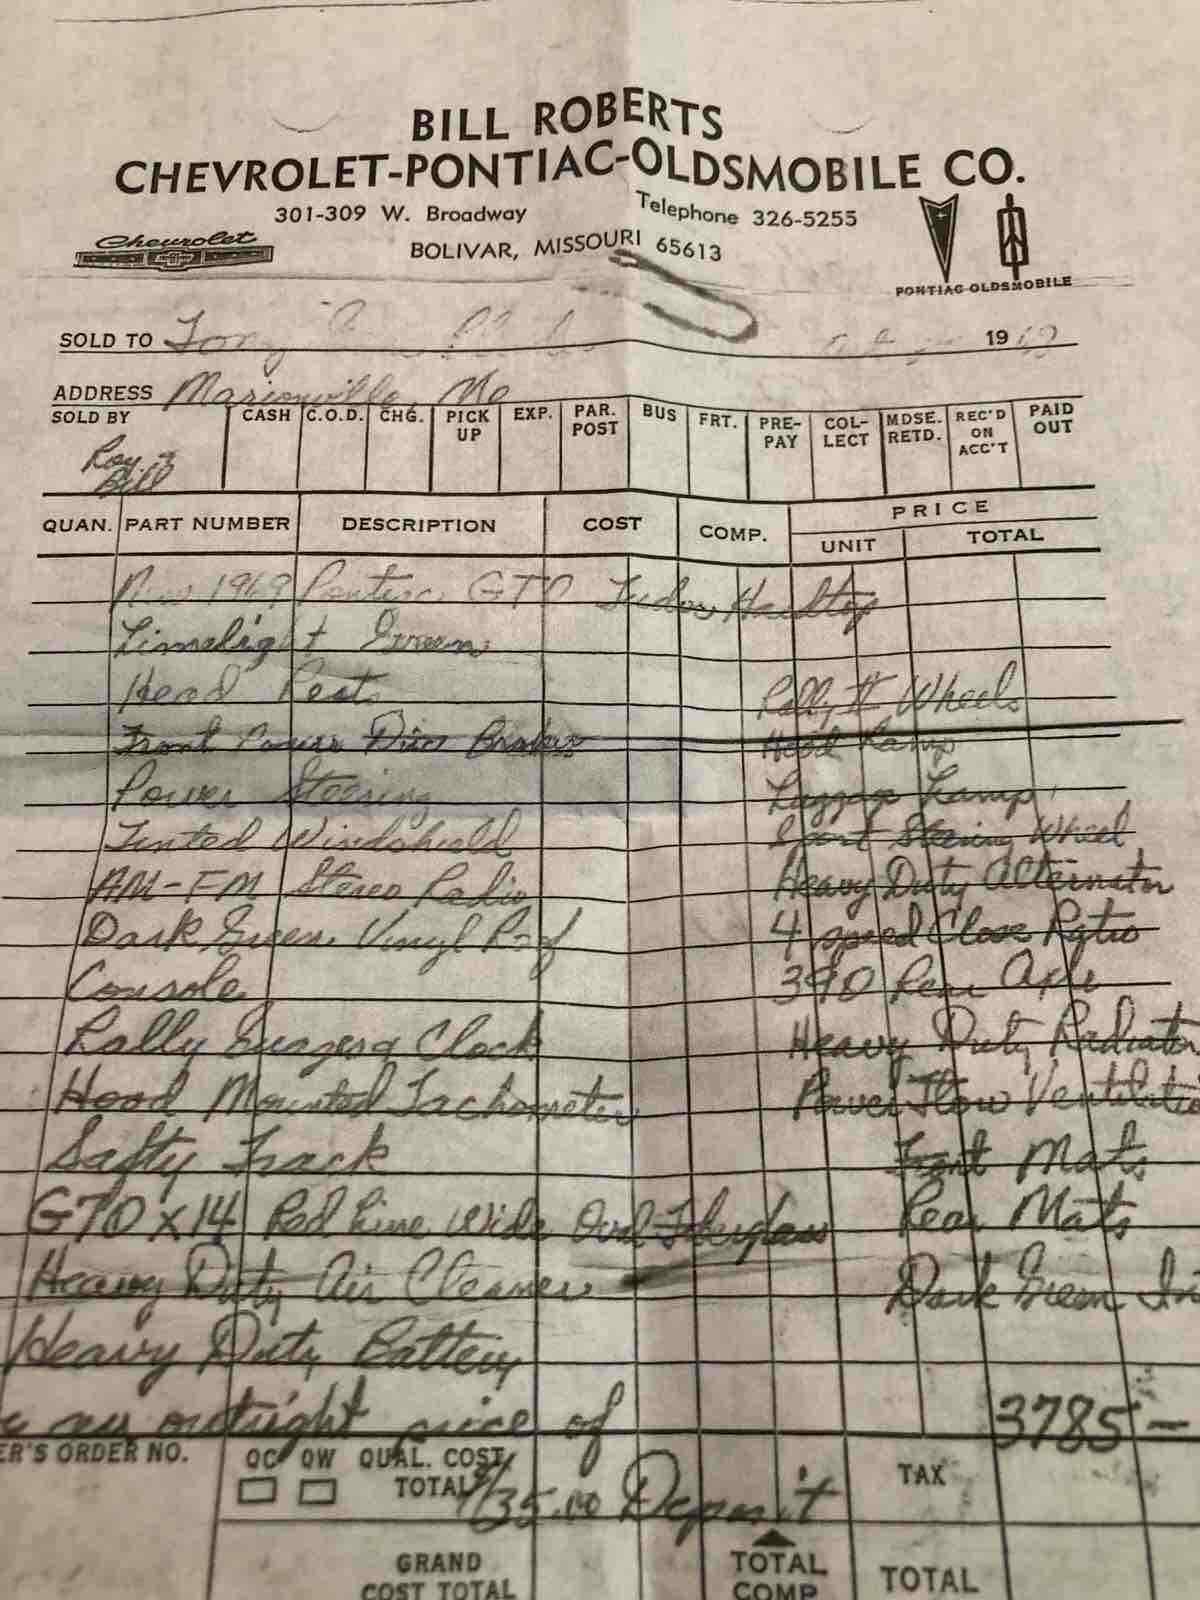 BILL ROBERTS
CHEVROLET-PONTIAC-OLDSMOBILE CO.
301-309 W. Broadway Telephone 326-5255
Chevrolet BOLIVAR, MISSOURI 65613
PONTIAC-OLDSMOBILE
SOLD TO Tony 19
ADDRESS Marionville, Mo
SOLD BY CASH C.O.D. CHG. PICK UP EXP. PAR. POST BUS FRT. PRE-PAY COL-LECT MDSE. RETD. REC'D ON ACC'T PAID OUT
Roy & Bill
QUAN. PART NUMBER DESCRIPTION COST COMP. PRICE
UNIT TOTAL
New 1969 Pontiac GTO Tudor Hardtop
Limelight Green
Head Rest Rally II Wheels
Front Power Disc Brakes Hood Lamp
Power Steering Luggage Lamp
Tinted Windshield Sport Steering Wheel
AM-FM Stereo Radio Heavy Duty Alternator
Dark Green Vinyl Roof 4 speed Close Ratio
Console 390 Rear Axle
Rally Guages & Clock Heavy Duty Radiator
Hood Mounted Tachometer Power Flow Ventilatio
Safty Track Front Mats
G70x14 Red Line Wide Oval Fiberglass Rear Mats
Heavy Duty Air Cleaner Dark Green In
Heavy Duty Battery
outright price of 3785-
ER'S ORDER NO. QC QW QUAL. COST TOTAL TAX
Deposit
GRAND COST TOTAL TOTAL COMP TOTAL